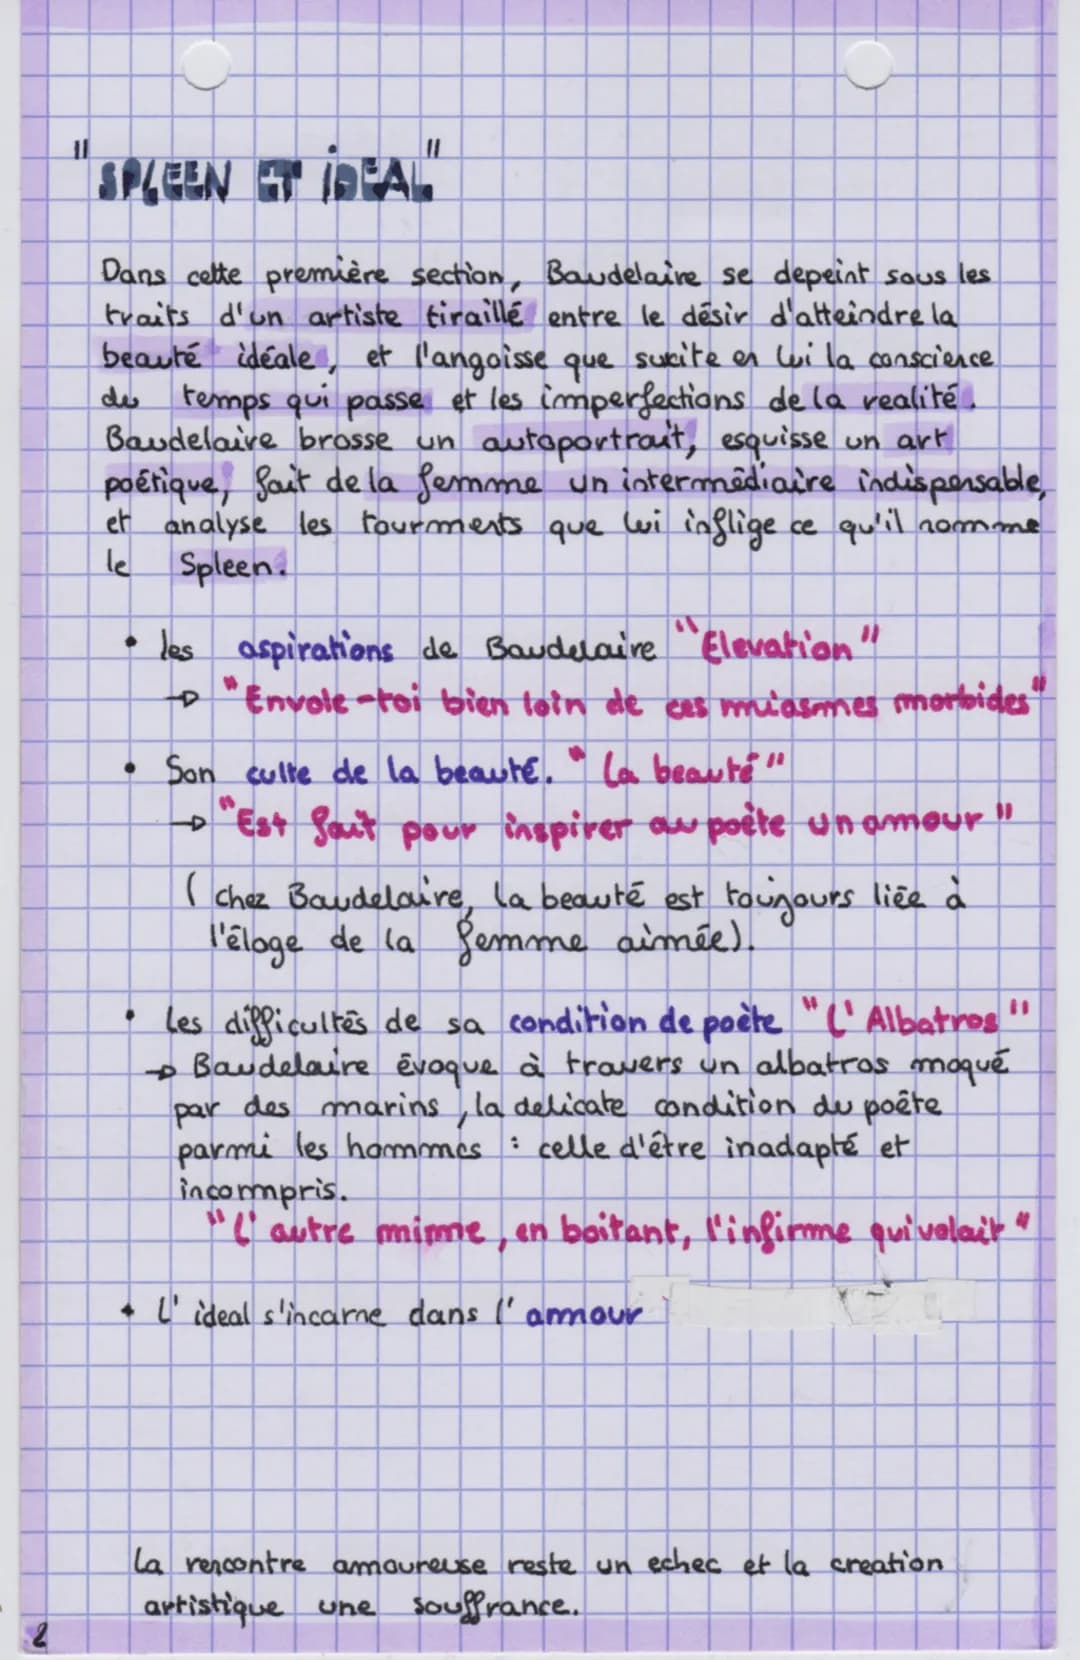 "SPLEEN ET iDEAL"
Dans cette première section, Baudelaire se depeint sous les
traits d'un artiste tiraillé entre le désir d'atteindre la
beauté idéale, et l'angoisse que sucite en lui la conscience
du temps qui passe et les imperfections de la realité.
Baudelaire brosse un autoportrait, esquisse un art
poétique, fait de la femme un intermédiaire indispensable,
et analyse les tourments que lui inflige ce qu'il nomme
le Spleen.
• les aspirations de Baudelaire "Elevation"
→ "Envole-toi bien loin de ces miasmes morbides"
• Son culte de la beauté. "La beauté"
→ "Est fait pour inspirer au poète un amour"
( chez Baudelaire, la beauté est toujours liée à
l'éloge de la femme aimée).
• Les difficultés de sa condition de poète "L'Albatros"
→ Baudelaire évoque à travers un albatros moqué
par des marins, la delicate condition du poète
parmi les hommes : celle d'être inadapté et
incompris.
"L'autre mime, en boitant, l'infirme qui volait"
• L'ideal s'incarne dans l'amour
La rencontre amoureuse reste un echec et la creation
artistique une souffrance.
2